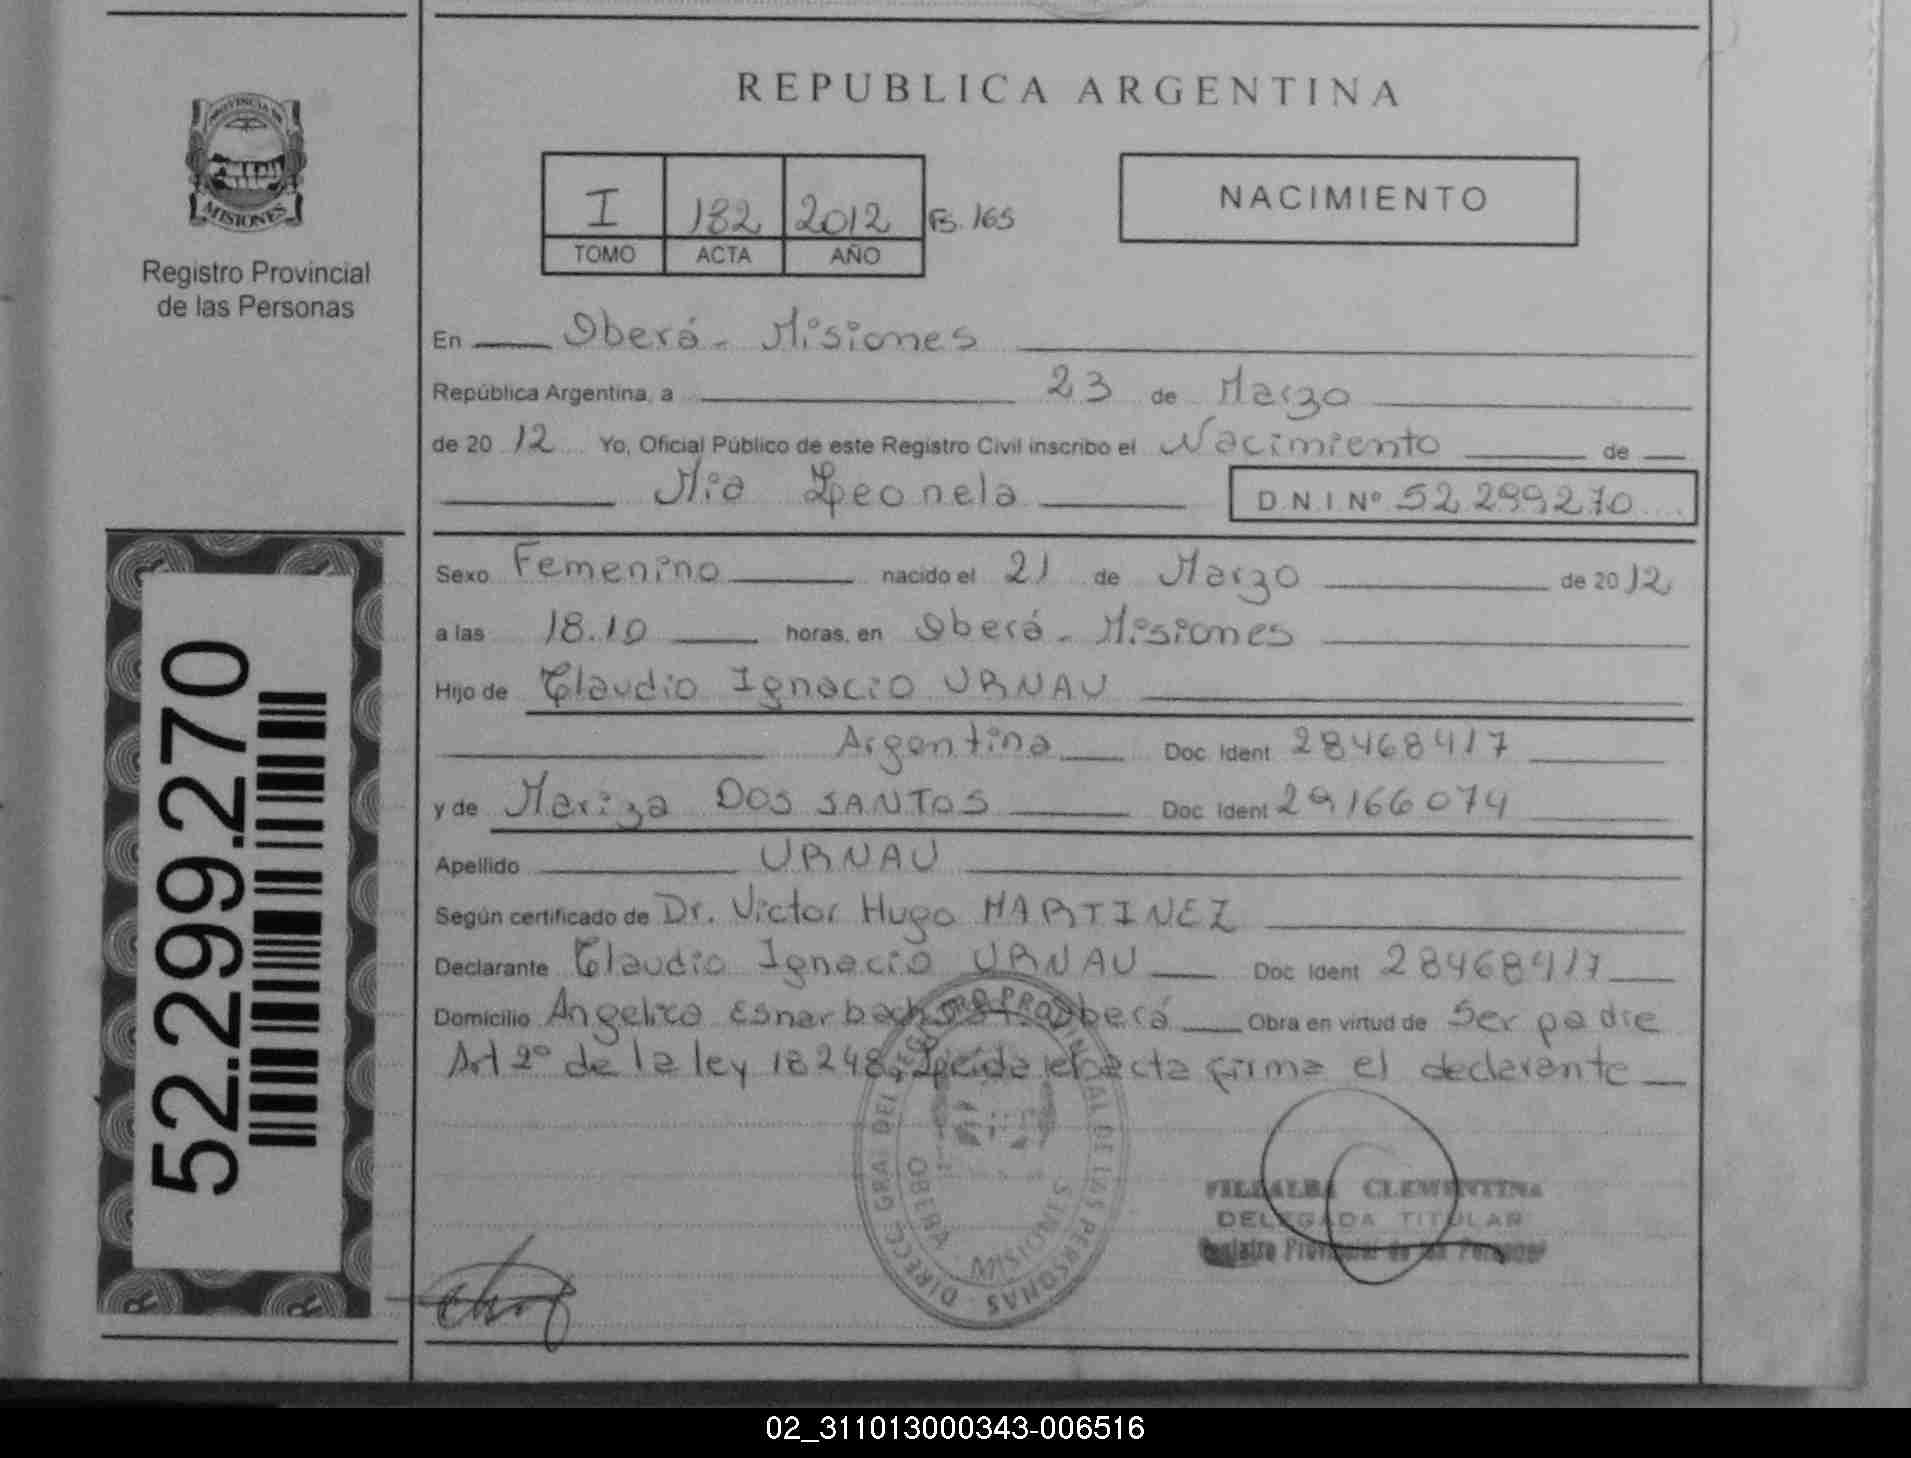 PROVINCIA DE
MISIONES
Registro Provincial
de las Personas
52.299.270
REPUBLICA ARGENTINA
I 182 2012 Fs. 165
TOMO ACTA AÑO
NACIMIENTO
En Oberá - Misiones
República Argentina, a 23 de Marzo
de 20 12 Yo, Oficial Público de este Registro Civil inscribo el Nacimiento de
Mia Leonela D.N.I Nº 52 299270
Sexo Femenino nacido el 21 de Marzo de 20 12
a las 18.10 horas, en Oberá - Misiones
Hijo de Claudio Ignacio URNAU
Argentina Doc. Ident 28468417
y de Mariza DOS SANTOS Doc. Ident 29166074
Apellido URNAU
Según certificado de Dr. Victor Hugo MARTINEZ
Declarante Claudio Ignacio URNAU Doc. Ident 28468417
Domicilio Angelica Esnarbach Oberá Obra en virtud de Ser padre
Art 2º de la ley 18248, Leida el acta firma el declarante
DIRECC. GRAL DEL REGISTRO PROVINCIAL DE LAS PERSONAS
OBERA - MISIONES
VILLALBA CLEMENTINA
DELEGADA TITULAR
Registro Provincial de las Personas
02_311013000343-006516